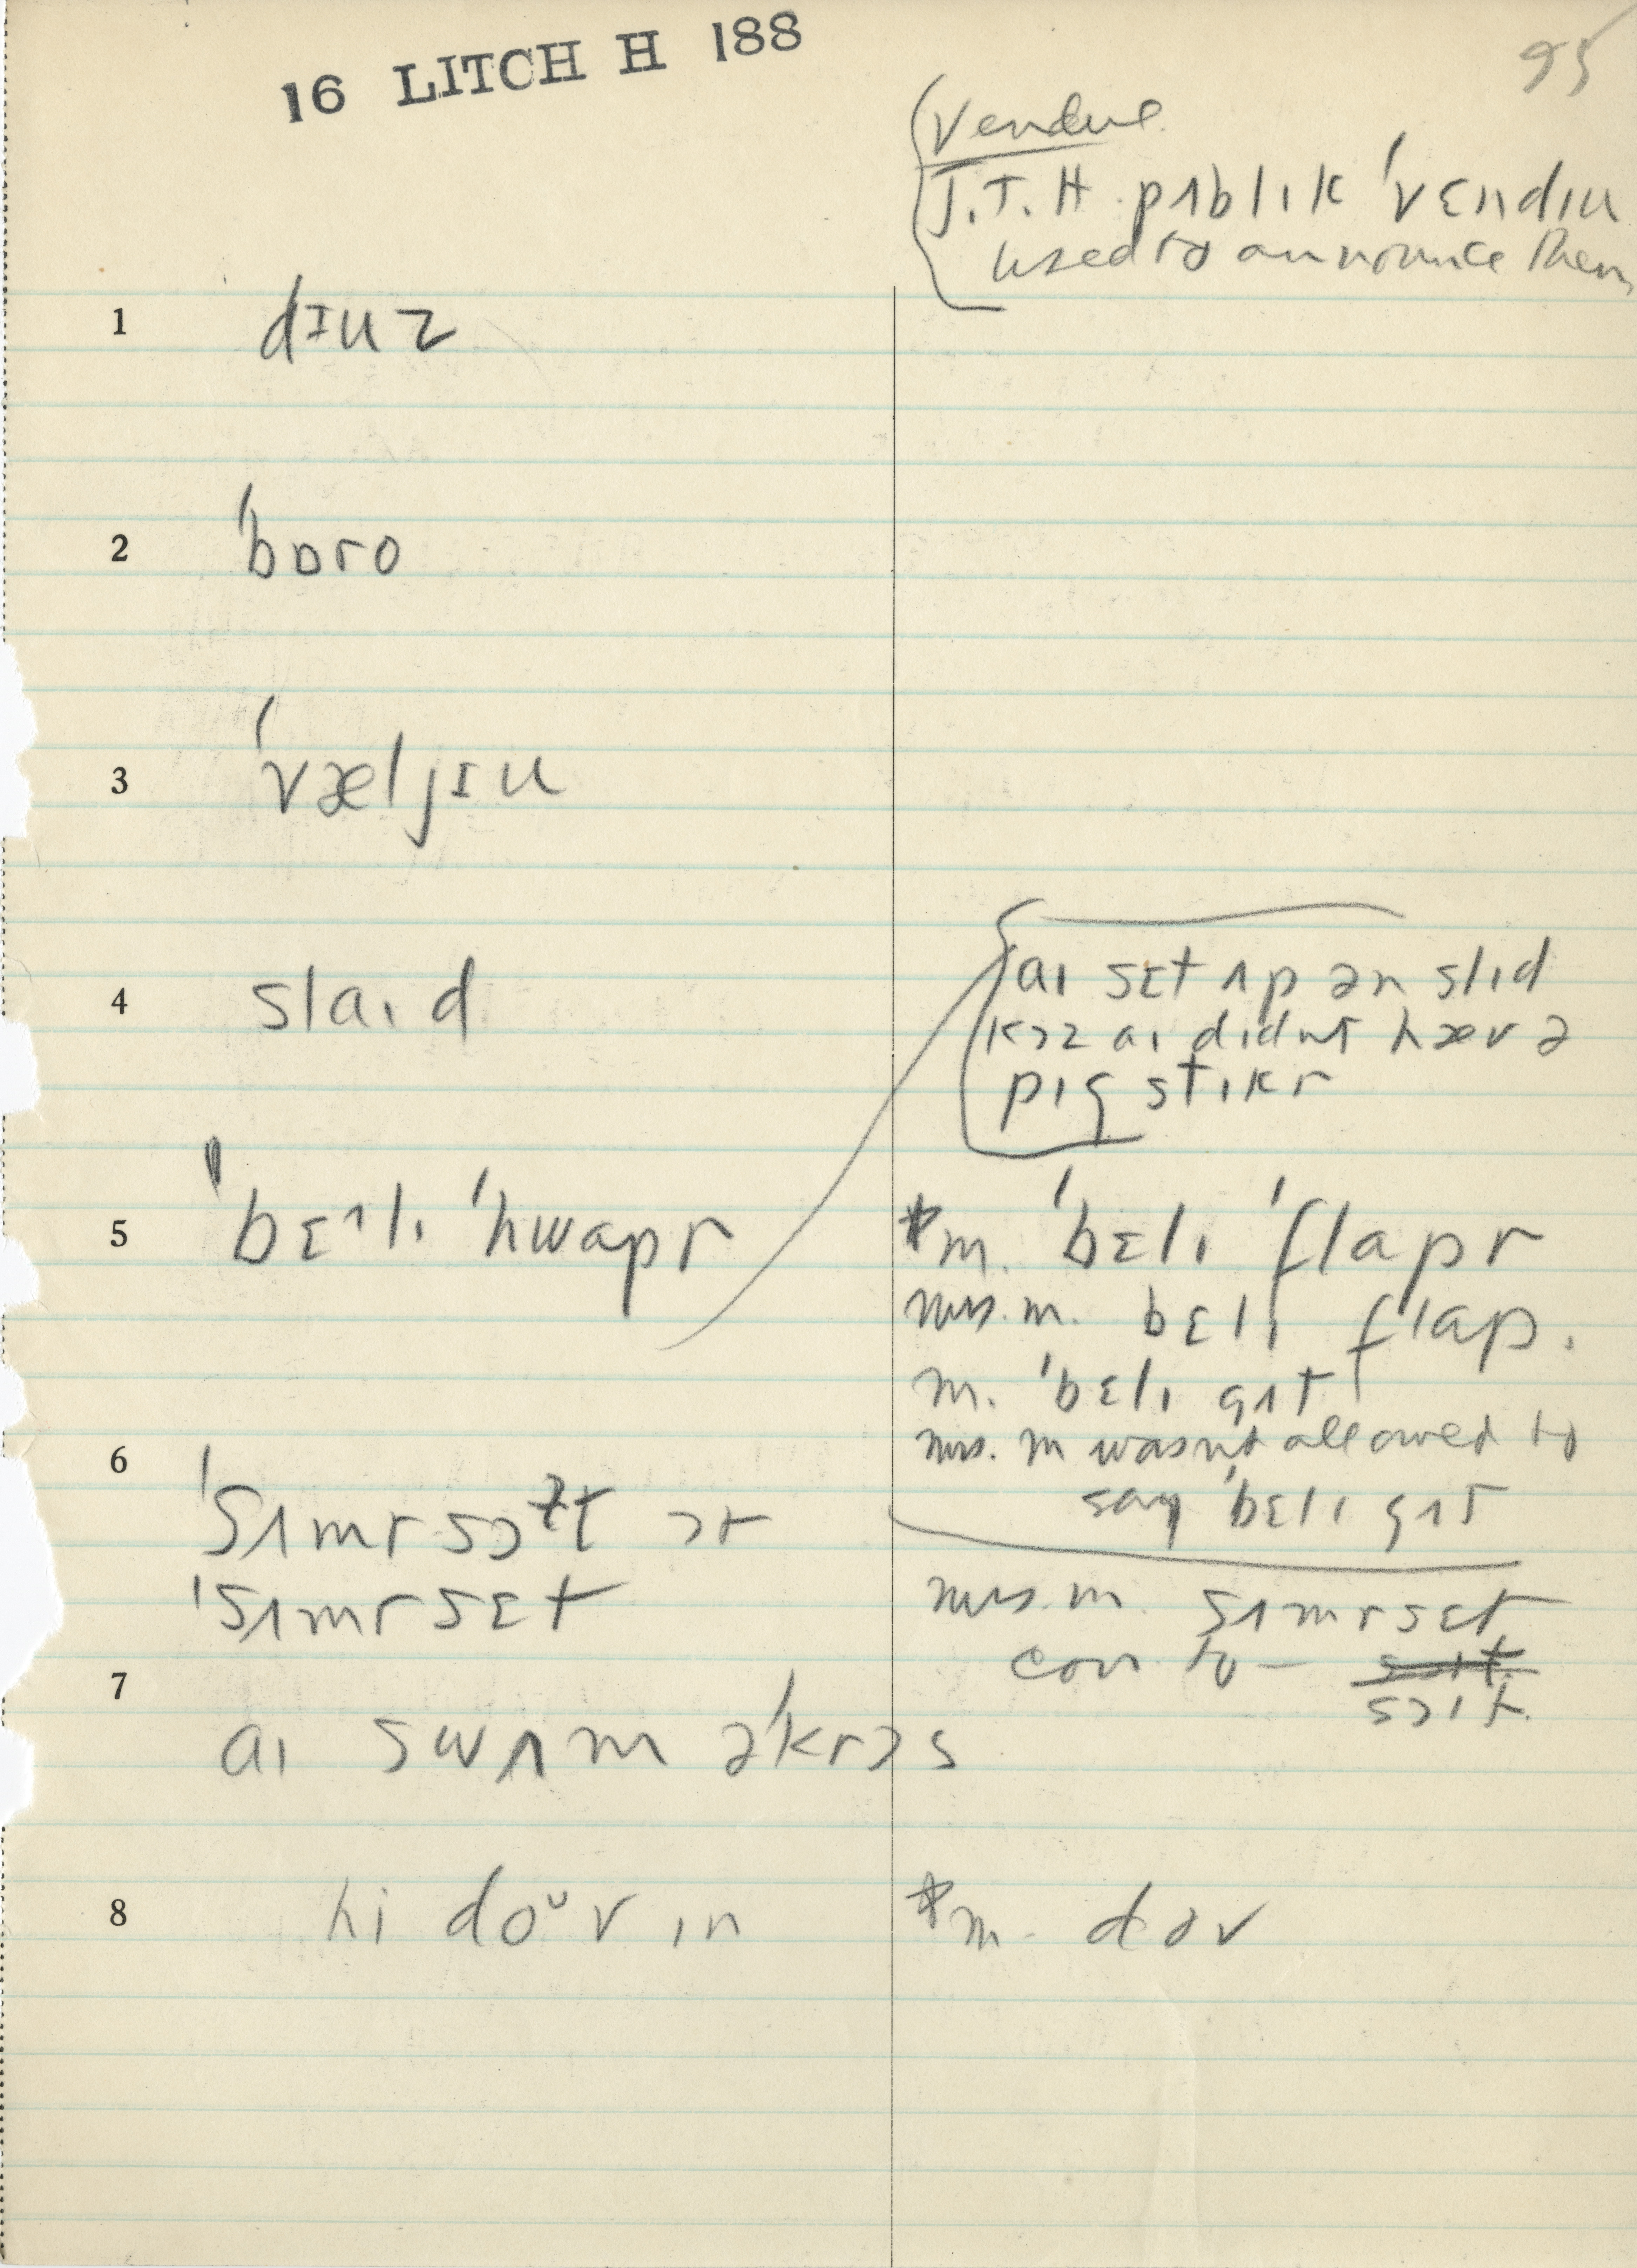 16 LITCH H 188
95
Vendue
J.T.H. pʌblɪk ˈvɛndɪu
used to announce them
1 dɪuz
2 ˈbɒro
3 ˈvæljɪu
4 slaɪd
aɪ sɛt ʌp ən slɪd
kɔz aɪ didnt hæv ə
pɪg stɪkr
5 ˈbɛᴧlɪ ˈhwapr
*m. ˈbɛlɪ ˈflapr
mrs. m. bɛlɪ flap.
m. ˈbɛlɪ gʌt
mrs. m wasn't allowed to
say ˈbɛlɪ gʌt
6 ˈsʌmrsɔɫt or
ˈsʌmrsɛt
mrs. m. sʌmrsɛt
corr. to –
sɔlt.
7 aɪ swʌm əˈkrɔs
8 hi doᴜv ɪn
*m. dɵv